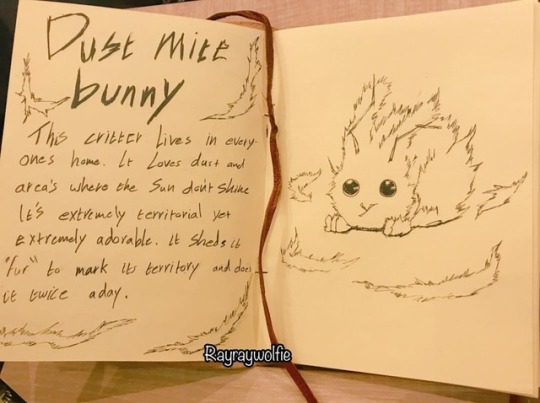 Dust mite
bunny
This critter lives in every-
ones home. It Loves dust and
area's where the Sun don't shine
It's extremely territorial yet
extremely adorable. It sheds it
"fur" to mark its territory and does
it twice a day.
Rayraywolfie